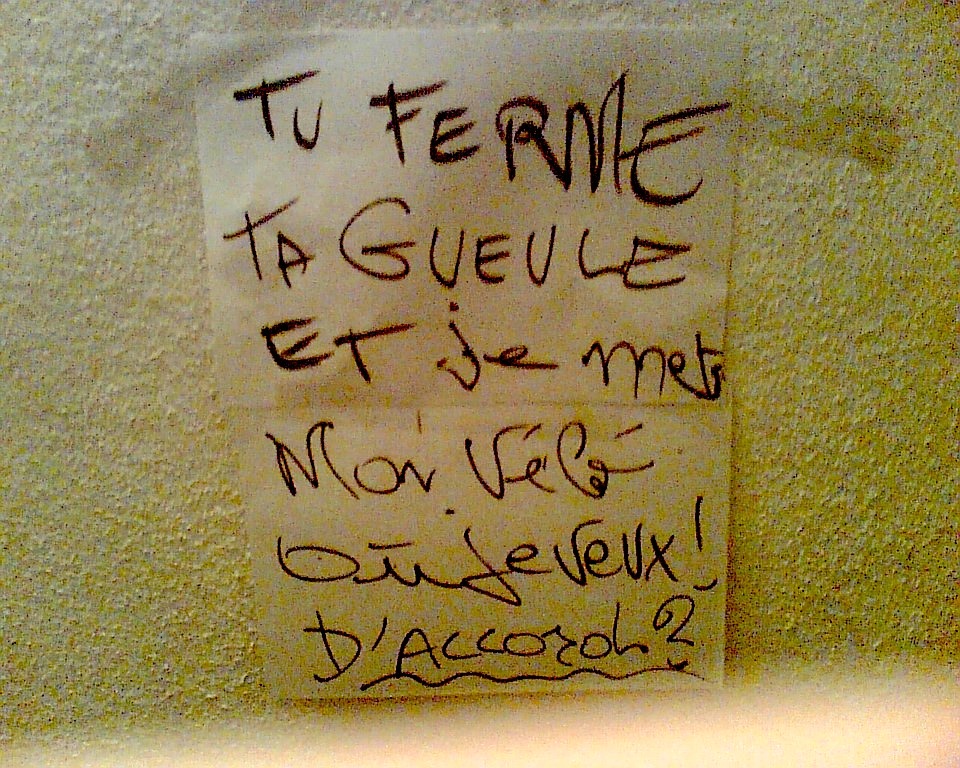 TU FERME
TA GUEULE
ET je mets
Mon Vélo
Où je veux!
D'Accord?